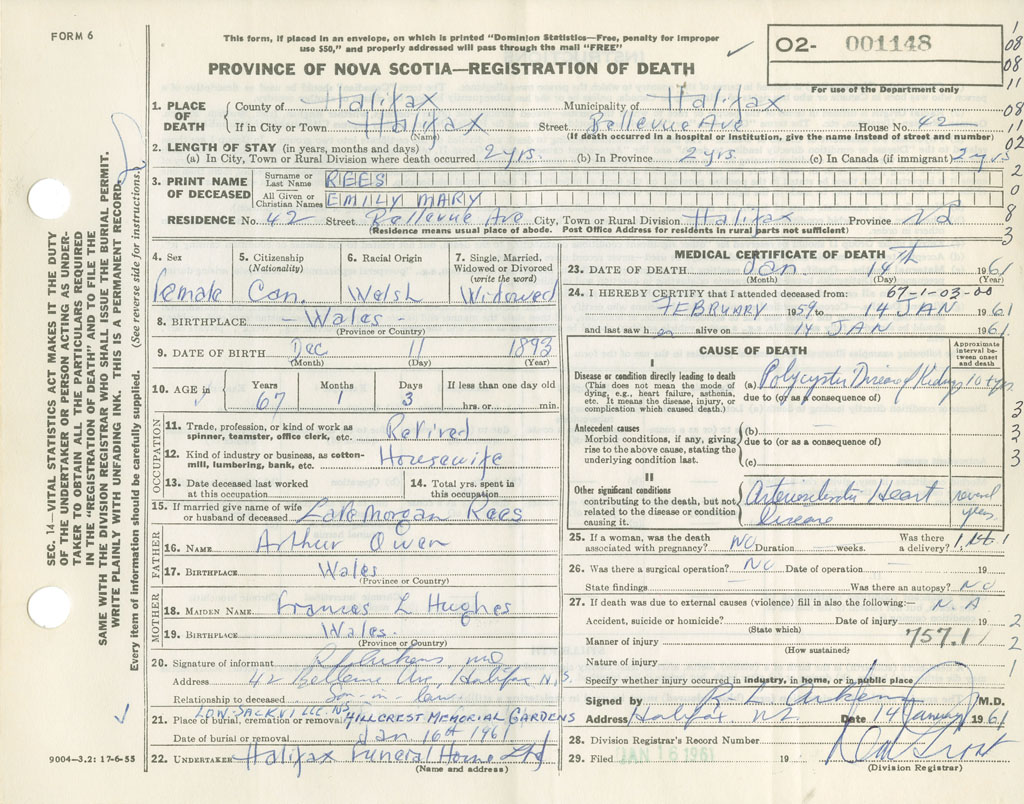 FORM 6
This form, if placed in an envelope, on which is printed "Dominion Statistics—Free, penalty for improper
use $50," and properly addressed will pass through the mail "FREE"
02- 001148
For use of the Department only
PROVINCE OF NOVA SCOTIA—REGISTRATION OF DEATH
1. PLACE OF DEATH
County of Halifax Municipality of Halifax
If in City or Town Halifax Street Bellevue Ave House No. 42
(Name) (If death occurred in a hospital or institution, give the name instead of street and number)
2. LENGTH OF STAY (in years, months and days)
(a) In City, Town or Rural Division where death occurred 2 yrs. (b) In Province 2 yrs. (c) In Canada (if immigrant) 2 yrs
3. PRINT NAME OF DECEASED
Surname or Last Name REES
All Given or Christian Names EMILY MARY
RESIDENCE No. 42 Street Bellevue Ave City, Town or Rural Division Halifax Province NS
(Residence means usual place of abode. Post Office Address for residents in rural parts not sufficient)
4. Sex
female
5. Citizenship
(Nationality)
Can.
6. Racial Origin
Welsh
7. Single, Married,
Widowed or Divorced
(write the word)
Widowed
8. BIRTHPLACE - Wales -
(Province or Country)
9. DATE OF BIRTH Dec 11 1893
(Month) (Day) (Year)
10. AGE in
Years Months Days If less than one day old
67 1 3 hrs. or min.
OCCUPATION
11. Trade, profession, or kind of work as
spinner, teamster, office clerk, etc. Retired
12. Kind of industry or business, as cotton-
mill, lumbering, bank, etc. Housewife
13. Date deceased last worked
at this occupation
14. Total yrs. spent in
this occupation
15. If married give name of wife
or husband of deceased Late Morgan Rees
FATHER
16. NAME Arthur Owen
17. BIRTHPLACE Wales
(Province or Country)
MOTHER
18. MAIDEN NAME Frances L Hughes
19. BIRTHPLACE Wales.
(Province or Country)
20. Signature of informant
Address 42 Bellevue Ave, Halifax N.S.
Relationship to deceased Son-in-law
LOW. SACKVILLE NS
21. Place of burial, cremation or removal HILLCREST MEMORIAL GARDENS
Date of burial or removal Jan 16th 1961
22. UNDERTAKER Halifax Funeral Home Ltd
(Name and address)
MEDICAL CERTIFICATE OF DEATH
23. DATE OF DEATH Jan 14th 1961
(Month) (Day) (Year)
24. I HEREBY CERTIFY that I attended deceased from: 67-1-03-00
FEBRUARY 1959 to 14 JAN 1961
and last saw her alive on 14 JAN 1961
CAUSE OF DEATH
Approximate interval between onset and death
I
Disease or condition directly leading to death
(This does not mean the mode of
dying, e.g., heart failure, asthenia,
etc. It means the disease, injury, or
complication which caused death.)
(a) Polycystic Disease of Kidneys 10 yrs
due to (or as a consequence of)
Antecedent causes
Morbid conditions, if any, giving
rise to the above cause, stating the
underlying condition last.
(b)
due to (or as a consequence of)
(c)
II
Other significant conditions
contributing to the death, but not
related to the disease or condition
causing it.
Arteriosclerotic Heart
Disease
several
years
25. If a woman, was the death
associated with pregnancy? NO Duration weeks. Was there a delivery?
26. Was there a surgical operation? NO Date of operation 19
State findings Was there an autopsy? NO
27. If death was due to external causes (violence) fill in also the following:— N.A
Accident, suicide or homicide? Date of injury 19
(State which)
757.1
Manner of injury
(How sustained)
Nature of injury
Specify whether injury occurred in industry, in home, or in public place
Signed by M.D.
Address Halifax. NS Date 14 January 1961
28. Division Registrar's Record Number
29. Filed JAN 16 1961 19
(Division Registrar)
SEC. 14—VITAL STATISTICS ACT MAKES IT THE DUTY
OF THE UNDERTAKER OR PERSON ACTING AS UNDER-
TAKER TO OBTAIN ALL THE PARTICULARS REQUIRED
IN THE "REGISTRATION OF DEATH" AND TO FILE THE
SAME WITH THE DIVISION REGISTRAR WHO SHALL ISSUE THE BURIAL PERMIT.
WRITE PLAINLY WITH UNFADING INK. THIS IS A PERMANENT RECORD.
Every item of information should be carefully supplied. (See reverse side for instructions.)
9004-3.2: 17-6-55